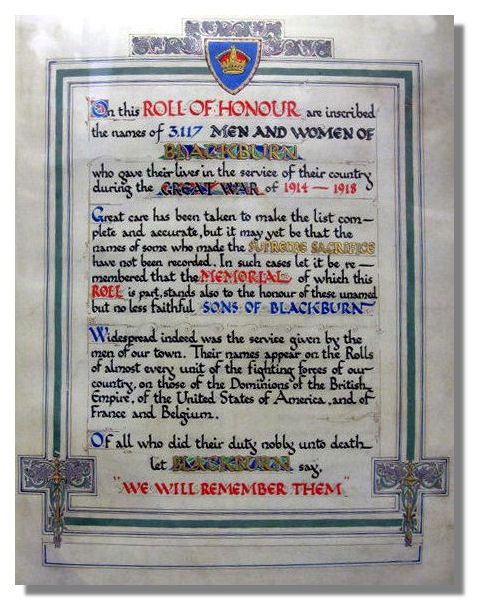 On this ROLL OF HONOUR are inscribed
the names of 3,117 MEN AND WOMEN OF
BLACKBURN
who gave their lives in the service of their country
during the GREAT WAR of 1914 — 1918
Great care has been taken to make the list com–
plete and accurate, but it may yet be that the
names of some who made the SUPREME SACRIFICE
have not been recorded. In such cases let it be re–
membered that the MEMORIAL of which this
ROLL is part, stands also to the honour of these unnamed
but no less faithful SONS OF BLACKBURN
Widespread indeed was the service given by the
men of our town. Their names appear on the Rolls
of almost every unit of the fighting forces of our
country, on those of the Dominions of the British
Empire, of the United States of America, and of
France and Belgium.
Of all who did their duty nobly unto death
let BLACKBURN say,
"WE WILL REMEMBER THEM"